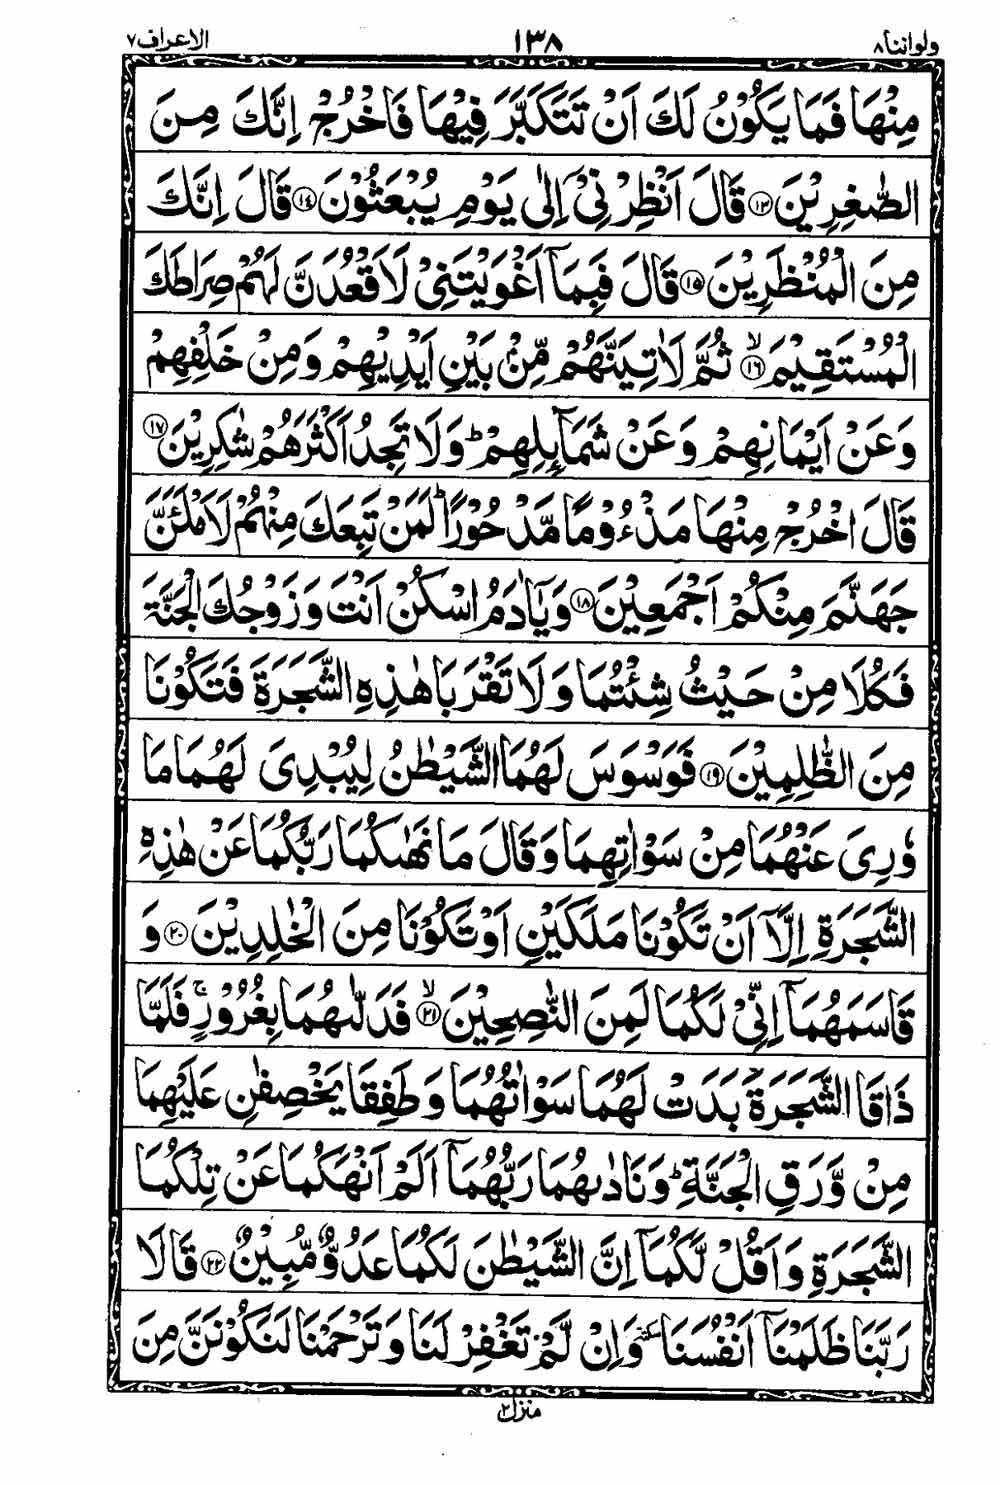 ولواننا ٨
١٣٨
الاعراف ٧
مِنْهَا فَمَا يَكُوْنُ لَكَ اَنْ تَتَكَبَّرَ فِيْهَا فَاخْرُجْ اِنَّكَ مِنَ
الصّٰغِرِيْنَ ١٣ قَالَ اَنْظِرْنِيْۤ اِلٰى يَوْمِ يُبْعَثُوْنَ ١٤ قَالَ اِنَّكَ
مِنَ الْمُنْظَرِيْنَ ١٥ قَالَ فَبِمَاۤ اَغْوَيْتَنِيْ لَاَقْعُدَنَّ لَهُمْ صِرَاطَكَ
الْمُسْتَقِيْمَ ١٦ۙ ثُمَّ لَاٰتِيَنَّهُمْ مِّنْۢ بَيْنِ اَيْدِيْهِمْ وَمِنْ خَلْفِهِمْ
وَعَنْ اَيْمَانِهِمْ وَعَنْ شَمَآئِلِهِمْ ؕ وَلَا تَجِدُ اَكْثَرَهُمْ شٰكِرِيْنَ ١٧
قَالَ اخْرُجْ مِنْهَا مَذْءُوْمًا مَّدْحُوْرًا ؕ لَمَنْ تَبِعَكَ مِنْهُمْ لَاَمْلَئَنَّ
جَهَنَّمَ مِنْكُمْ اَجْمَعِيْنَ ١٨ وَيٰۤاٰدَمُ اسْكُنْ اَنْتَ وَزَوْجُكَ الْجَنَّةَ
فَكُلَا مِنْ حَيْثُ شِئْتُمَا وَلَا تَقْرَبَا هٰذِهِ الشَّجَرَةَ فَتَكُوْنَا
مِنَ الظّٰلِمِيْنَ ١٩ فَوَسْوَسَ لَهُمَا الشَّيْطٰنُ لِيُبْدِيَ لَهُمَا مَا
وٗرِيَ عَنْهُمَا مِنْ سَوْاٰتِهِمَا وَقَالَ مَا نَهٰىكُمَا رَبُّكُمَا عَنْ هٰذِهِ
الشَّجَرَةِ اِلَّاۤ اَنْ تَكُوْنَا مَلَكَيْنِ اَوْ تَكُوْنَا مِنَ الْخٰلِدِيْنَ ٢٠ وَ
قَاسَمَهُمَاۤ اِنِّيْ لَكُمَا لَمِنَ النّٰصِحِيْنَ ٢١ۙ فَدَلّٰىهُمَا بِغُرُوْرٍ ۚ فَلَمَّا
ذَاقَا الشَّجَرَةَ بَدَتْ لَهُمَا سَوْاٰتُهُمَا وَطَفِقَا يَخْصِفٰنِ عَلَيْهِمَا
مِنْ وَّرَقِ الْجَنَّةِ ؕ وَنَادٰىهُمَا رَبُّهُمَاۤ اَلَمْ اَنْهَكُمَا عَنْ تِلْكُمَا
الشَّجَرَةِ وَاَقُلْ لَّكُمَاۤ اِنَّ الشَّيْطٰنَ لَكُمَا عَدُوٌّ مُّبِيْنٌ ٢٢ قَالَا
رَبَّنَا ظَلَمْنَاۤ اَنْفُسَنَا ٚ وَاِنْ لَّمْ تَغْفِرْ لَنَا وَتَرْحَمْنَا لَنَكُوْنَنَّ مِنَ
منزل ٢